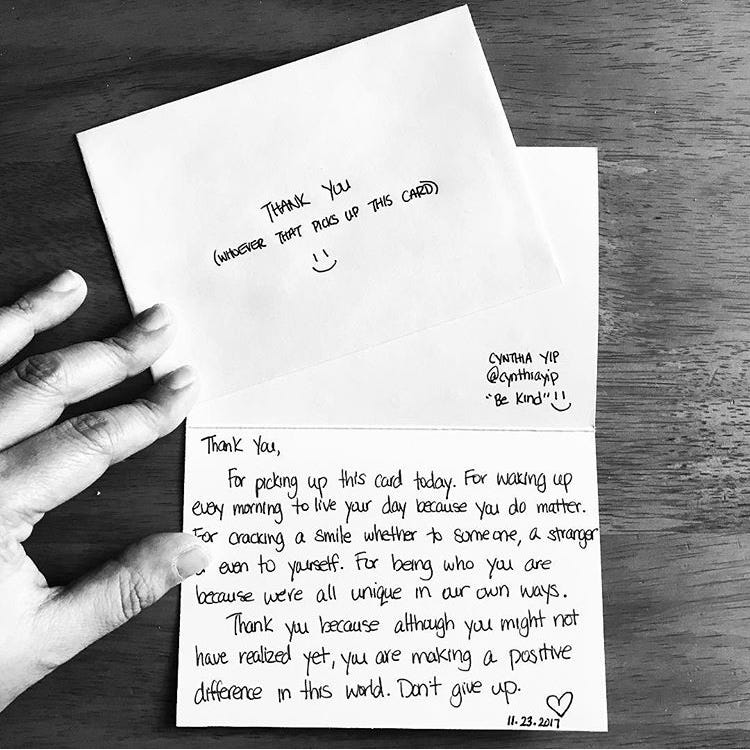 THANK YOU
(WHOEVER THAT PICKS UP THIS CARD)
CYNTHIA YIP
@cynthiayip
"Be Kind"
Thank You,
For picking up this card today. For waking up
every morning to live your day because you do matter.
For cracking a smile whether to someone, a stranger
even to yourself. For being who you are
because we're all unique in our own ways.
Thank you because although you might not
have realized yet, you are making a positive
difference in this world. Don't give up.
11.23.2017